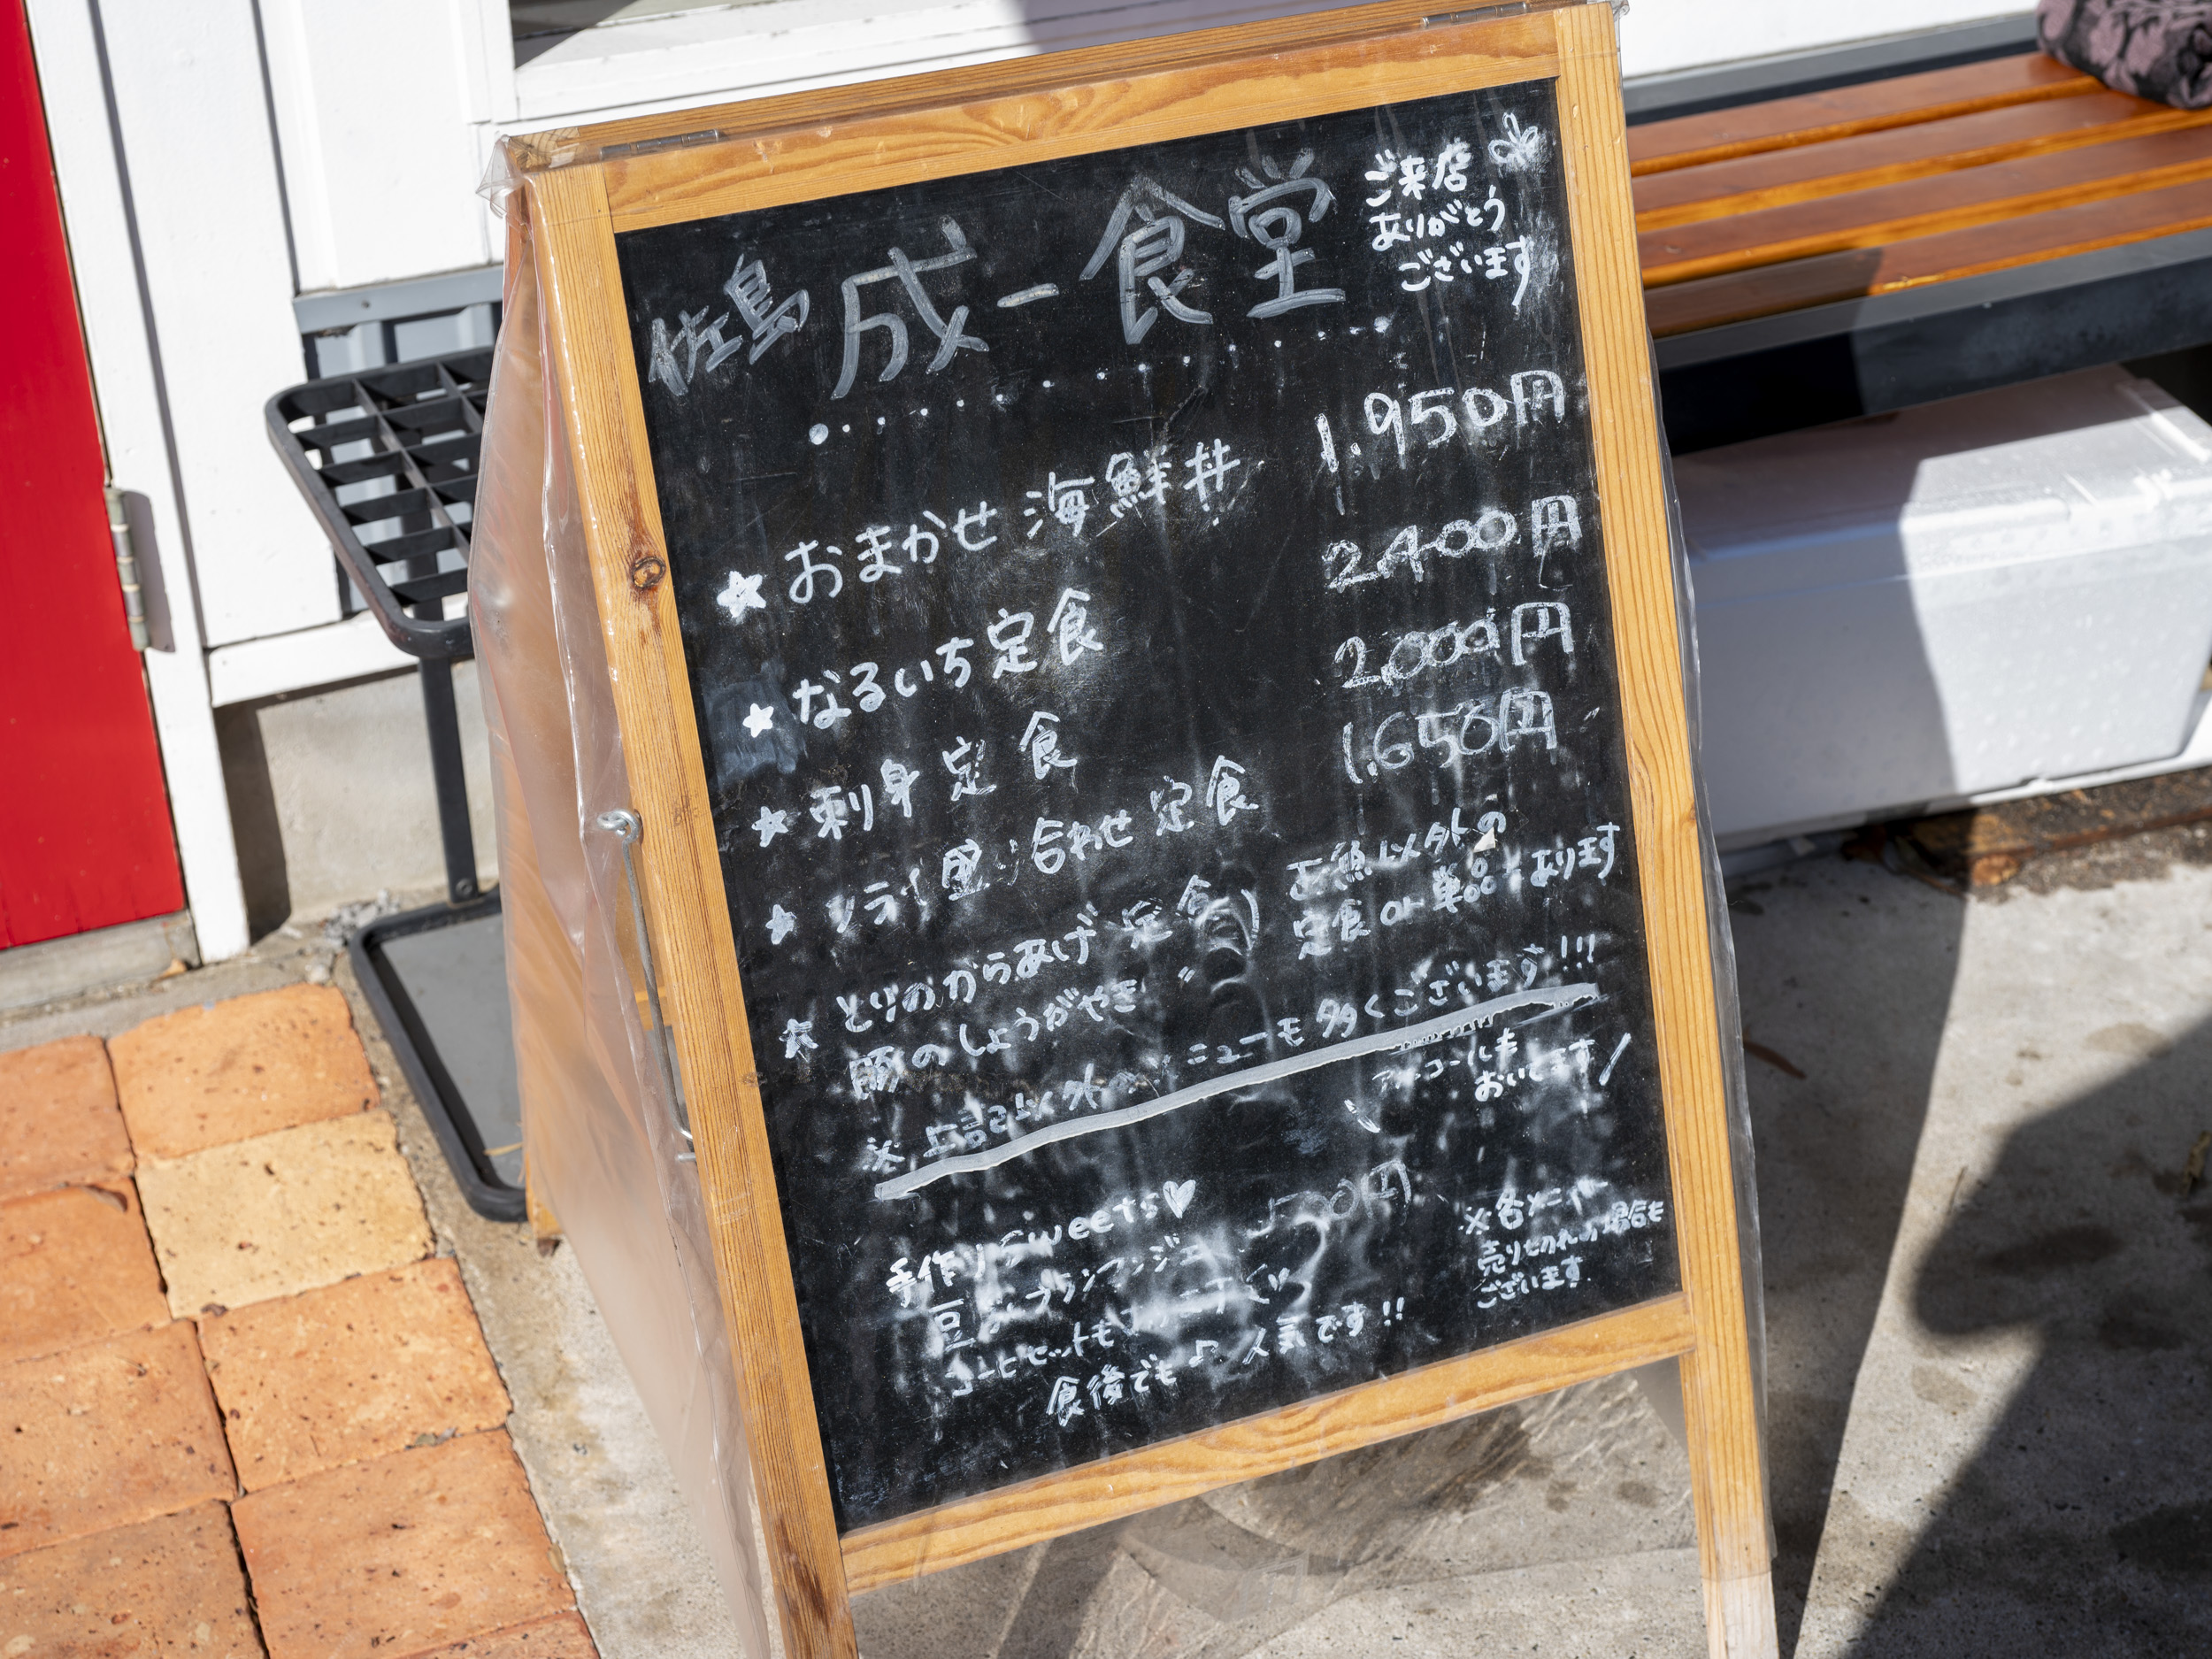 佐島 成一食堂
ご来店
ありがとう
ございます
★ おまかせ 海鮮丼 1.950円
★ なるいち定食 2,400円
★ 刺身定食 2,000円
★ フライ盛り合わせ定食 1.650円
★ とりのからあげ定食
豚のしょうがやき 〃
お魚以外の
定食 or 単品もあります
※ 上記以外のメニューも多くございます!!!
アルコールも
おいてます/
手作りSweets♡
500円
コーヒーセットも
食後でも♪ 人気です!!
※各メニュー
売り切れの場合も
ございます.